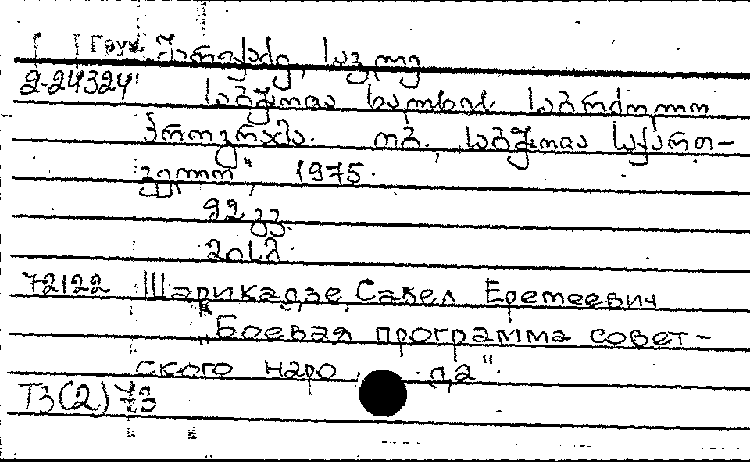 Груз. შარიქაძე, საველ
2-24324
საბჭოთა ხალხის საბრძოლო
პროგრამა. თბ., „საბჭოთა საქართ-
ველო", 1975.
92 გვ.
20 კ.
72122 Шарикадзе, Савел Еремеевич
"Боевая программа совет-
ского наро да".
Т3(2)